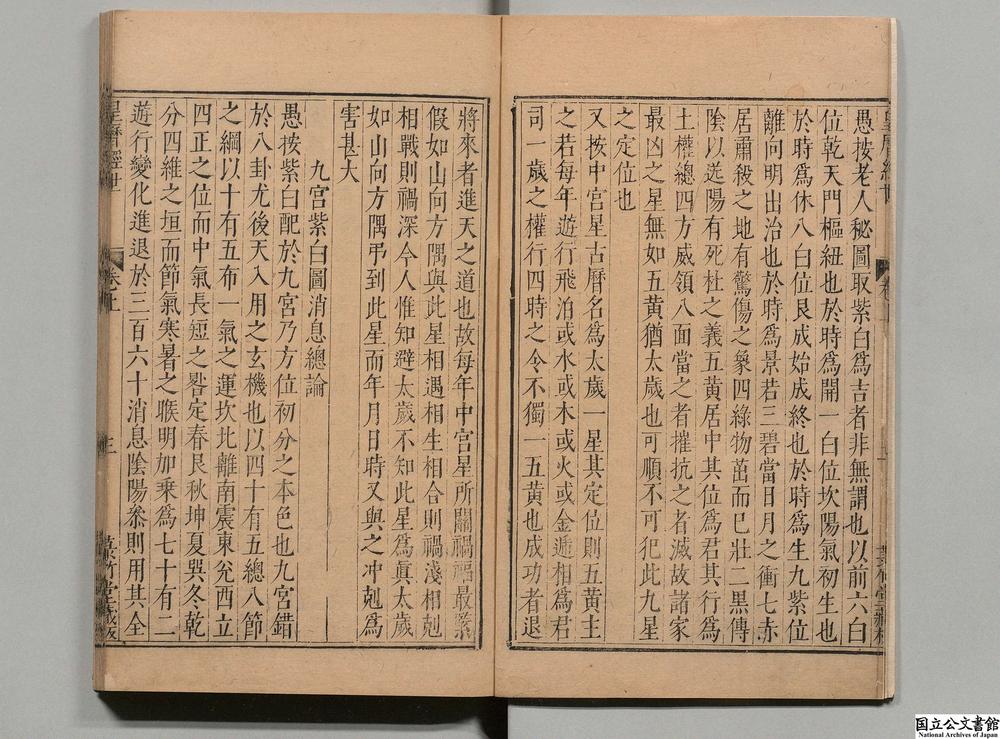 愚按老人秘圖取紫白爲吉者非無謂也以前六白
位乾天門樞紐也於時爲開一白位坎陽氣初生也
於時爲休八白位艮成始成終也於時爲生九紫位
離向明出治也於時爲景若三碧當日月之衝七赤
居肅殺之地有驚傷之象四綠物茁而已壯二黑傳
陰以送陽有死杜之義五黃居中其位爲君其行爲
土權總四方威領八面當之者摧抗之者滅故諸家
最凶之星無如五黃猶太歲也可順不可犯此九星
之定位也
又按中宮星古曆名爲太歲一星其定位則五黃主
之若每年遊行飛泊或水或木或火或金遞相爲君
司一歲之權行四時之令不獨一五黃也成功者退
將來者進天之道也故每年中宮星所關禍福最緊
假如山向方隅與此星相遇相生相合則禍淺相剋
相戰則禍深今人惟知避太歲不知此星爲眞太歲
如山向方隅弔到此星而年月日時又與之冲剋爲
害甚大
九宮紫白圖消息總論
愚按紫白配於九宮乃方位初分之本色也九宮錯
於八卦尤後天入用之玄機也以四十有五總八節
之綱以十有五布一氣之運坎北離南震東兊西立
四正之位而中氣長短之晷定春艮秋坤夏巽冬乾
分四維之垣而節氣寒暑之𠋫明加乘爲七十有二
遊行變化進退於三百六十消息陰陽叅則用其全
卷上
国立公文書館
National Archives of Japan